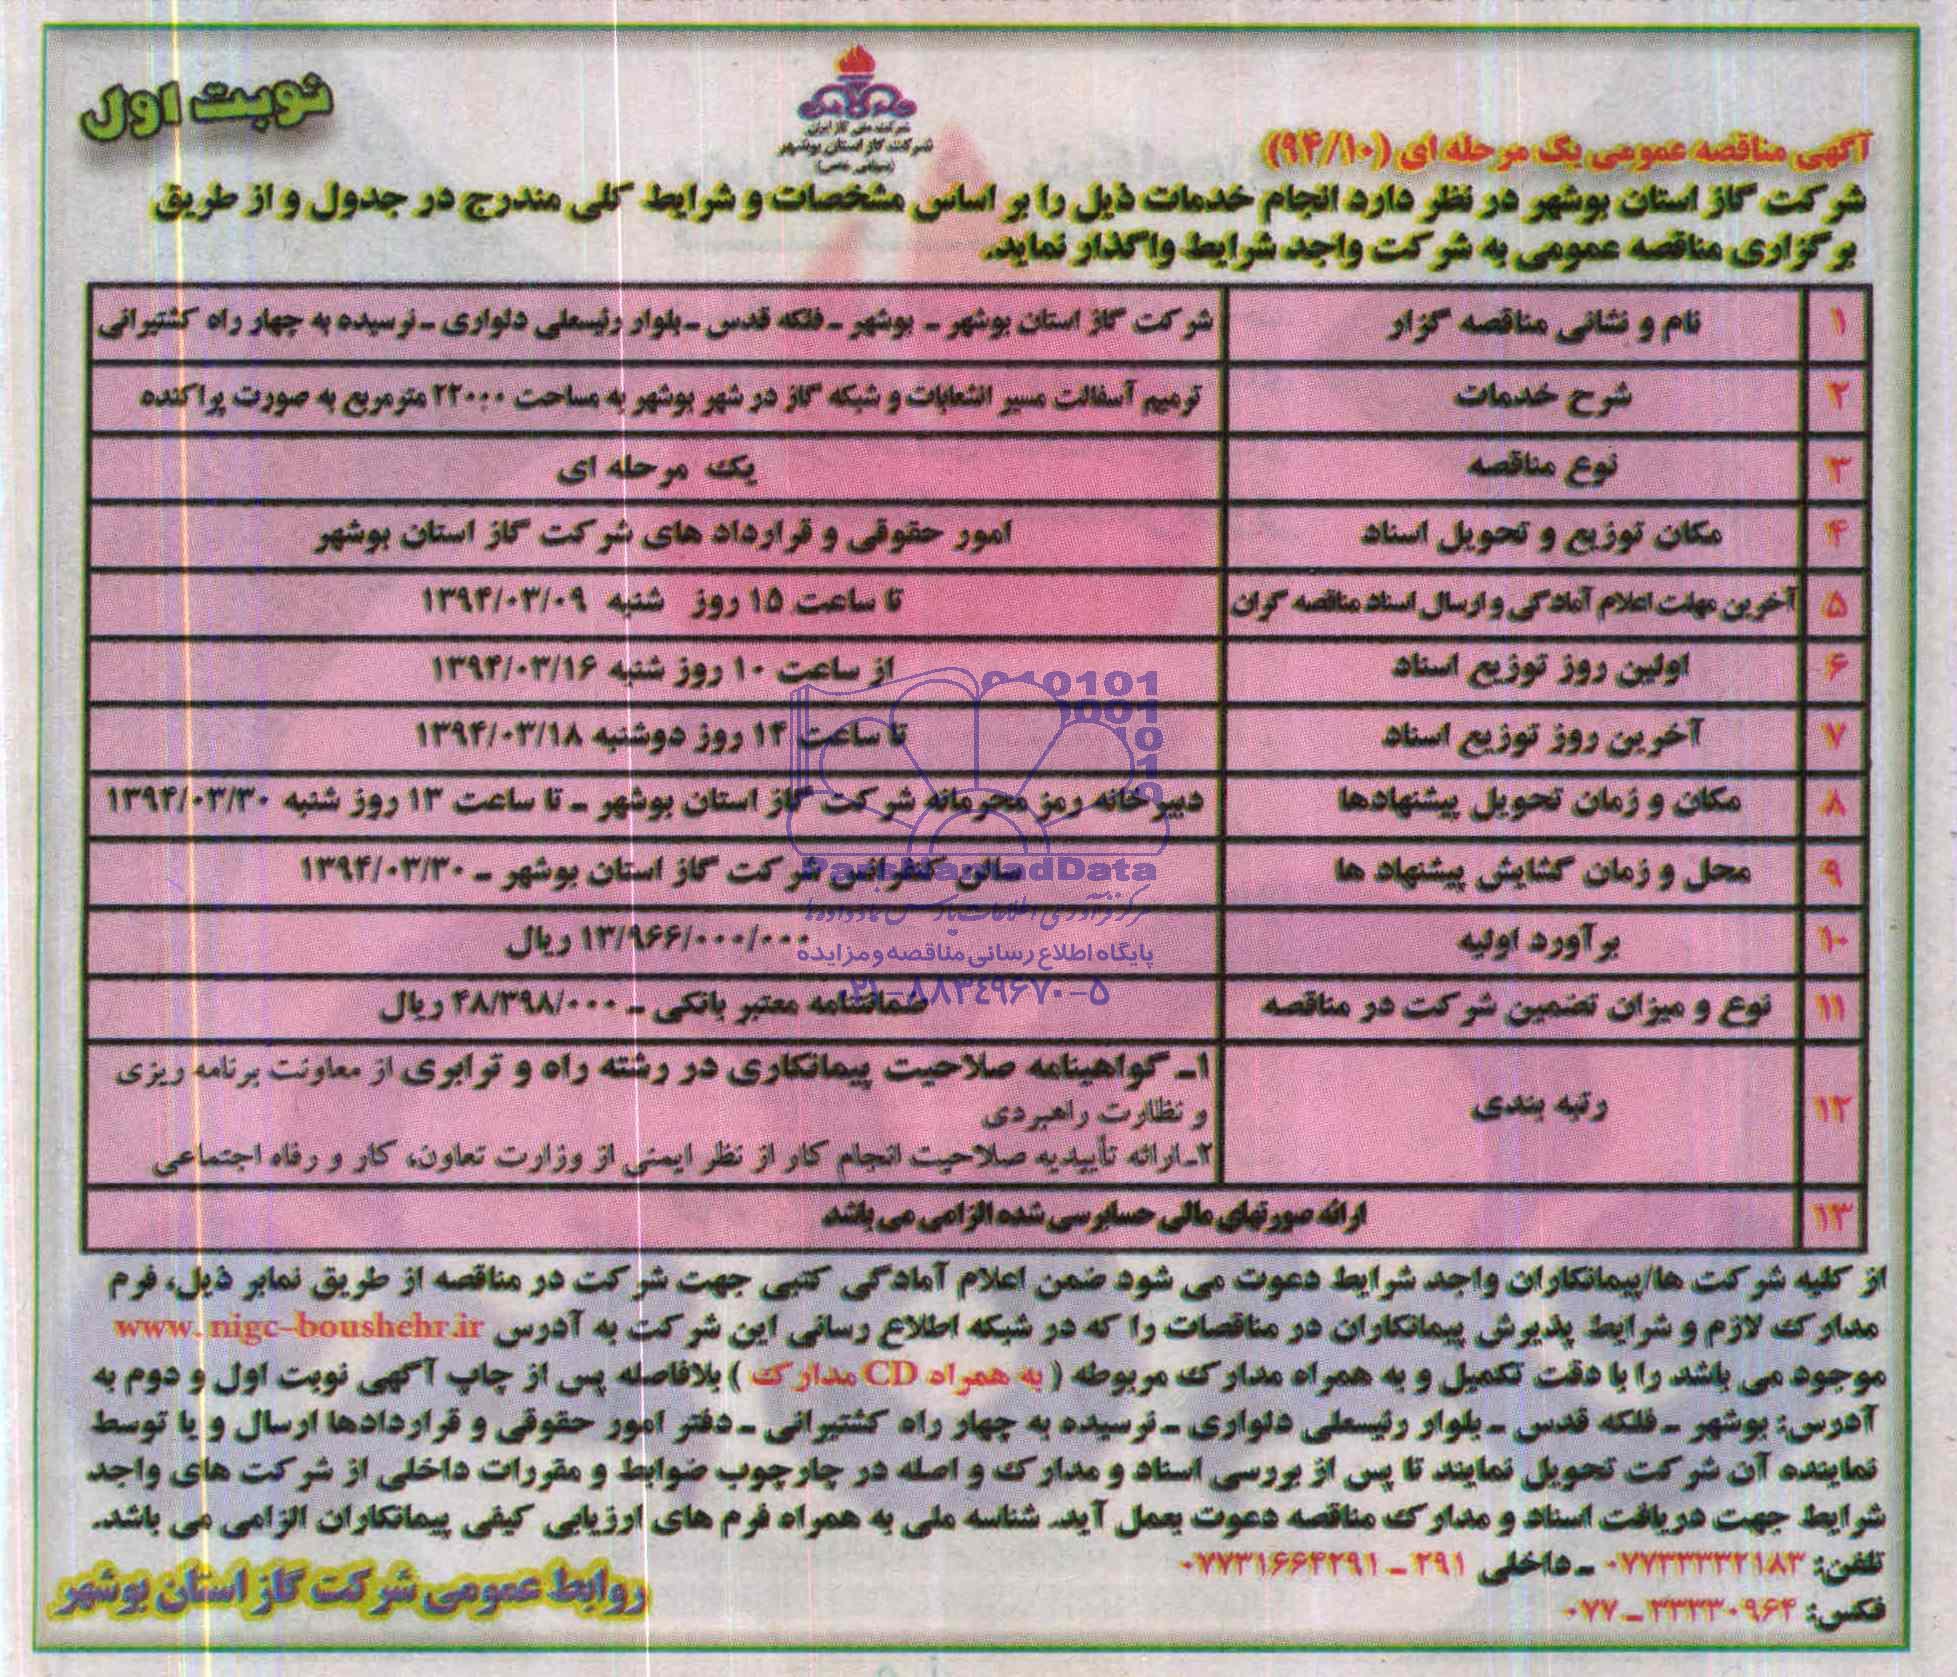 نوبت اول
شرکت ملی گاز ایران
شرکت گاز استان بوشهر
(سهامی خاص)
آگهی مناقصه عمومی یک مرحله ای (۹۴/۱۰)
شرکت گاز استان بوشهر در نظر دارد انجام خدمات ذیل را بر اساس مشخصات و شرایط کلی مندرج در جدول و از طریق
برگزاری مناقصه عمومی به شرکت واجد شرایط واگذار نماید.
۱ نام و نشانی مناقصه گزار شرکت گاز استان بوشهر - بوشهر - فلکه قدس - بلوار رئیسعلی دلواری - نرسیده به چهار راه کشتیرانی
۲ شرح خدمات ترمیم آسفالت مسیر انشعابات و شبکه گاز در شهر بوشهر به مساحت ۲۲۰۰۰ مترمربع به صورت پراکنده
۳ نوع مناقصه یک مرحله ای
۴ مکان توزیع و تحویل اسناد امور حقوقی و قرارداد های شرکت گاز استان بوشهر
۵ آخرین مهلت اعلام آمادگی و ارسال اسناد مناقصه گران تا ساعت ۱۵ روز شنبه ۱۳۹۴/۰۳/۰۹
۶ اولین روز توزیع اسناد از ساعت ۱۰ روز شنبه ۱۳۹۴/۰۳/۱۶
۷ آخرین روز توزیع اسناد تا ساعت ۱۴ روز دوشنبه ۱۳۹۴/۰۳/۱۸
۸ مکان و زمان تحویل پیشنهادها دبیرخانه رمز محرمانه شرکت گاز استان بوشهر - تا ساعت ۱۳ روز شنبه ۱۳۹۴/۰۳/۳۰
۹ محل و زمان گشایش پیشنهاد ها سالن کنفرانس شرکت گاز استان بوشهر - ۱۳۹۴/۰۳/۳۰
۱۰ برآورد اولیه ۱۳/۹۶۶/۰۰۰/۰۰۰ ریال
۱۱ نوع و میزان تضمین شرکت در مناقصه ضمانتنامه معتبر بانکی - ۴۸/۳۹۸/۰۰۰ ریال
۱۲ رتبه بندی ۱- گواهینامه صلاحیت پیمانکاری در رشته راه و ترابری از معاونت برنامه ریزی
و نظارت راهبردی
۲- ارائه تأییدیه صلاحیت انجام کار از نظر ایمنی از وزارت تعاون، کار و رفاه اجتماعی
۱۳ ارائه صورتهای مالی حسابرسی شده الزامی می باشد
از کلیه شرکت ها/پیمانکاران واجد شرایط دعوت می شود ضمن اعلام آمادگی کتبی جهت شرکت در مناقصه از طریق نمابر ذیل، فرم
مدارک لازم و شرایط پذیرش پیمانکاران در مناقصات را که در شبکه اطلاع رسانی این شرکت به آدرس www.nigc-boushehr.ir
موجود می باشد را با دقت تکمیل و به همراه مدارک مربوطه ( به همراه CD مدارک ) بلافاصله پس از چاپ آگهی نوبت اول و دوم به
آدرس: بوشهر - فلکه قدس - بلوار رئیسعلی دلواری - نرسیده به چهار راه کشتیرانی - دفتر امور حقوقی و قراردادها ارسال و یا توسط
نماینده آن شرکت تحویل نمایند تا پس از بررسی اسناد و مدارک و اصله در چارچوب ضوابط و مقررات داخلی از شرکت های واجد
شرایط جهت دریافت اسناد و مدارک مناقصه دعوت بعمل آید. شناسه ملی به همراه فرم های ارزیابی کیفی پیمانکاران الزامی می باشد.
تلفن: ۰۷۷۳۳۳۳۲۱۸۳ - داخلی ۲۹۱ - ۰۷۷۳۱۶۶۴۲۹۱
فکس: ۳۳۳۳۰۹۶۴ - ۰۷۷
روابط عمومی شرکت گاز استان بوشهر
ParsNamadData
مرکز فرآوری اطلاعات پارس نماد داده ها
پایگاه اطلاع رسانی مناقصه و مزایده
۰۲۱-۸۸۳۴۹۶۷۰-۵